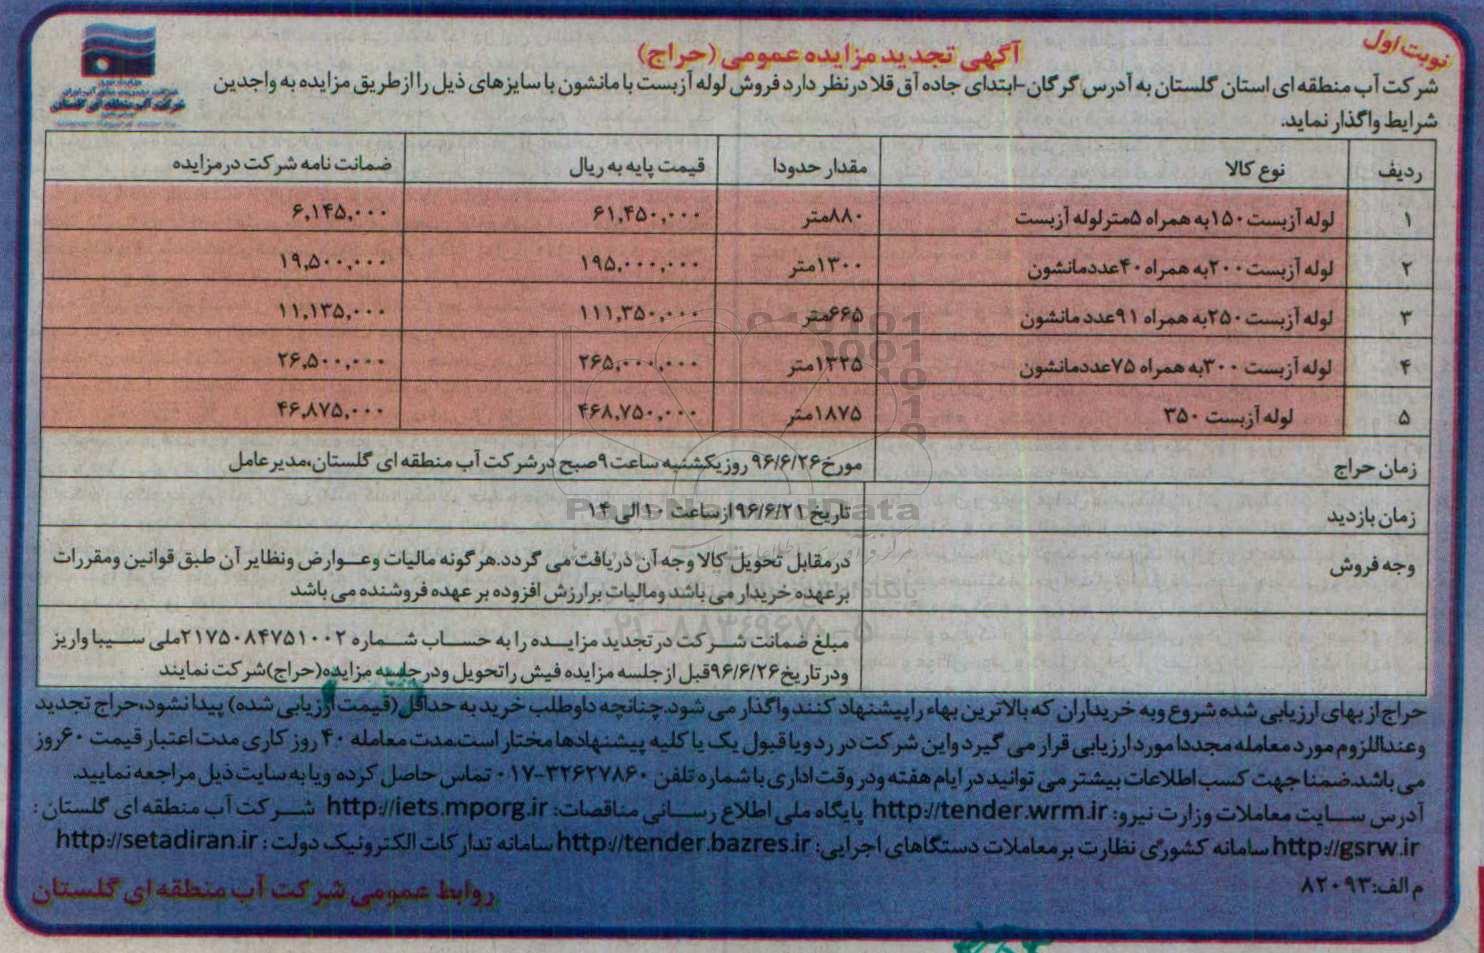 نوبت اول
آگهی تجدید مزایده عمومی (حراج)
شرکت آب منطقه ای گلستان
شرکت آب منطقه ای استان گلستان به آدرس گرگان-ابتدای جاده آق قلا درنظر دارد فروش لوله آزبست با مانشون با سایزهای ذیل را از طریق مزایده به واجدین
شرایط واگذار نماید.
ردیف نوع کالا مقدار حدودا قیمت پایه به ریال ضمانت نامه شرکت در مزایده
۱ لوله آزبست ۱۵۰ به همراه ۵ مترلوله آزبست ۸۸۰متر ۶۱,۴۵۰,۰۰۰ ۶,۱۴۵,۰۰۰
۲ لوله آزبست ۲۰۰ به همراه ۴۰ عدد مانشون ۱۳۰۰متر ۱۹۵,۰۰۰,۰۰۰ ۱۹,۵۰۰,۰۰۰
۳ لوله آزبست ۲۵۰ به همراه ۹۱ عدد مانشون ۶۶۵متر ۱۱۱,۳۵۰,۰۰۰ ۱۱,۱۳۵,۰۰۰
۴ لوله آزبست ۳۰۰ به همراه ۷۵ عدد مانشون ۱۳۲۵متر ۲۶۵,۰۰۰,۰۰۰ ۲۶,۵۰۰,۰۰۰
۵ لوله آزبست ۳۵۰ ۱۸۷۵متر ۴۶۸,۷۵۰,۰۰۰ ۴۶,۸۷۵,۰۰۰
زمان حراج مورخ ۹۶/۶/۲۶ روز یکشنبه ساعت ۹ صبح در شرکت آب منطقه ای گلستان،مدیرعامل
زمان بازدید تاریخ ۹۶/۶/۲۱ از ساعت ۱۰ الی ۱۴
وجه فروش درمقابل تحویل کالا وجه آن دریافت می گردد.هر گونه مالیات وعوارض ونظایر آن طبق قوانین ومقررات
برعهده خریدار می باشد ومالیات برارزش افزوده بر عهده فروشنده می باشد
مبلغ ضمانت شرکت در تجدید مزایده را به حساب شماره ۲۱۷۵۰۸۴۷۵۱۰۰۲ ملی سیبا واریز
ودر تاریخ ۹۶/۶/۲۶ قبل از جلسه مزایده فیش راتحویل ودر جلسه مزایده(حراج)شرکت نمایند
حراج از بهای ارزیابی شده شروع وبه خریداران که بالاترین بهاء را پیشنهاد کنند واگذار می شود.چنانچه داوطلب خرید به حداقل(قیمت ارزیابی شده) پیدا نشود،حراج تجدید
وعنداللزوم مورد معامله مجددا مورد ارزیابی قرار می گیرد واین شرکت در رد ویا قبول یک یا کلیه پیشنهادها مختار است.مدت معامله ۴۰ روز کاری مدت اعتبار قیمت ۶۰روز
می باشد.ضمنا جهت کسب اطلاعات بیشتر می توانید در ایام هفته ودر وقت اداری با شماره تلفن ۳۲۶۲۷۸۶۰-۰۱۷ تماس حاصل کرده ویا به سایت ذیل مراجعه نمایید.
آدرس سایت معاملات وزارت نیرو: http://tender.wrm.ir پایگاه ملی اطلاع رسانی مناقصات: http://iets.mporg.ir شرکت آب منطقه ای گلستان :
http://gsrw.ir سامانه کشوری نظارت بر معاملات دستگاهای اجرایی: http://tender.bazres.ir سامانه تدارکات الکترونیک دولت : http://setadiran.ir
م الف:۸۲۰۹۳
روابط عمومی شرکت آب منطقه ای گلستان